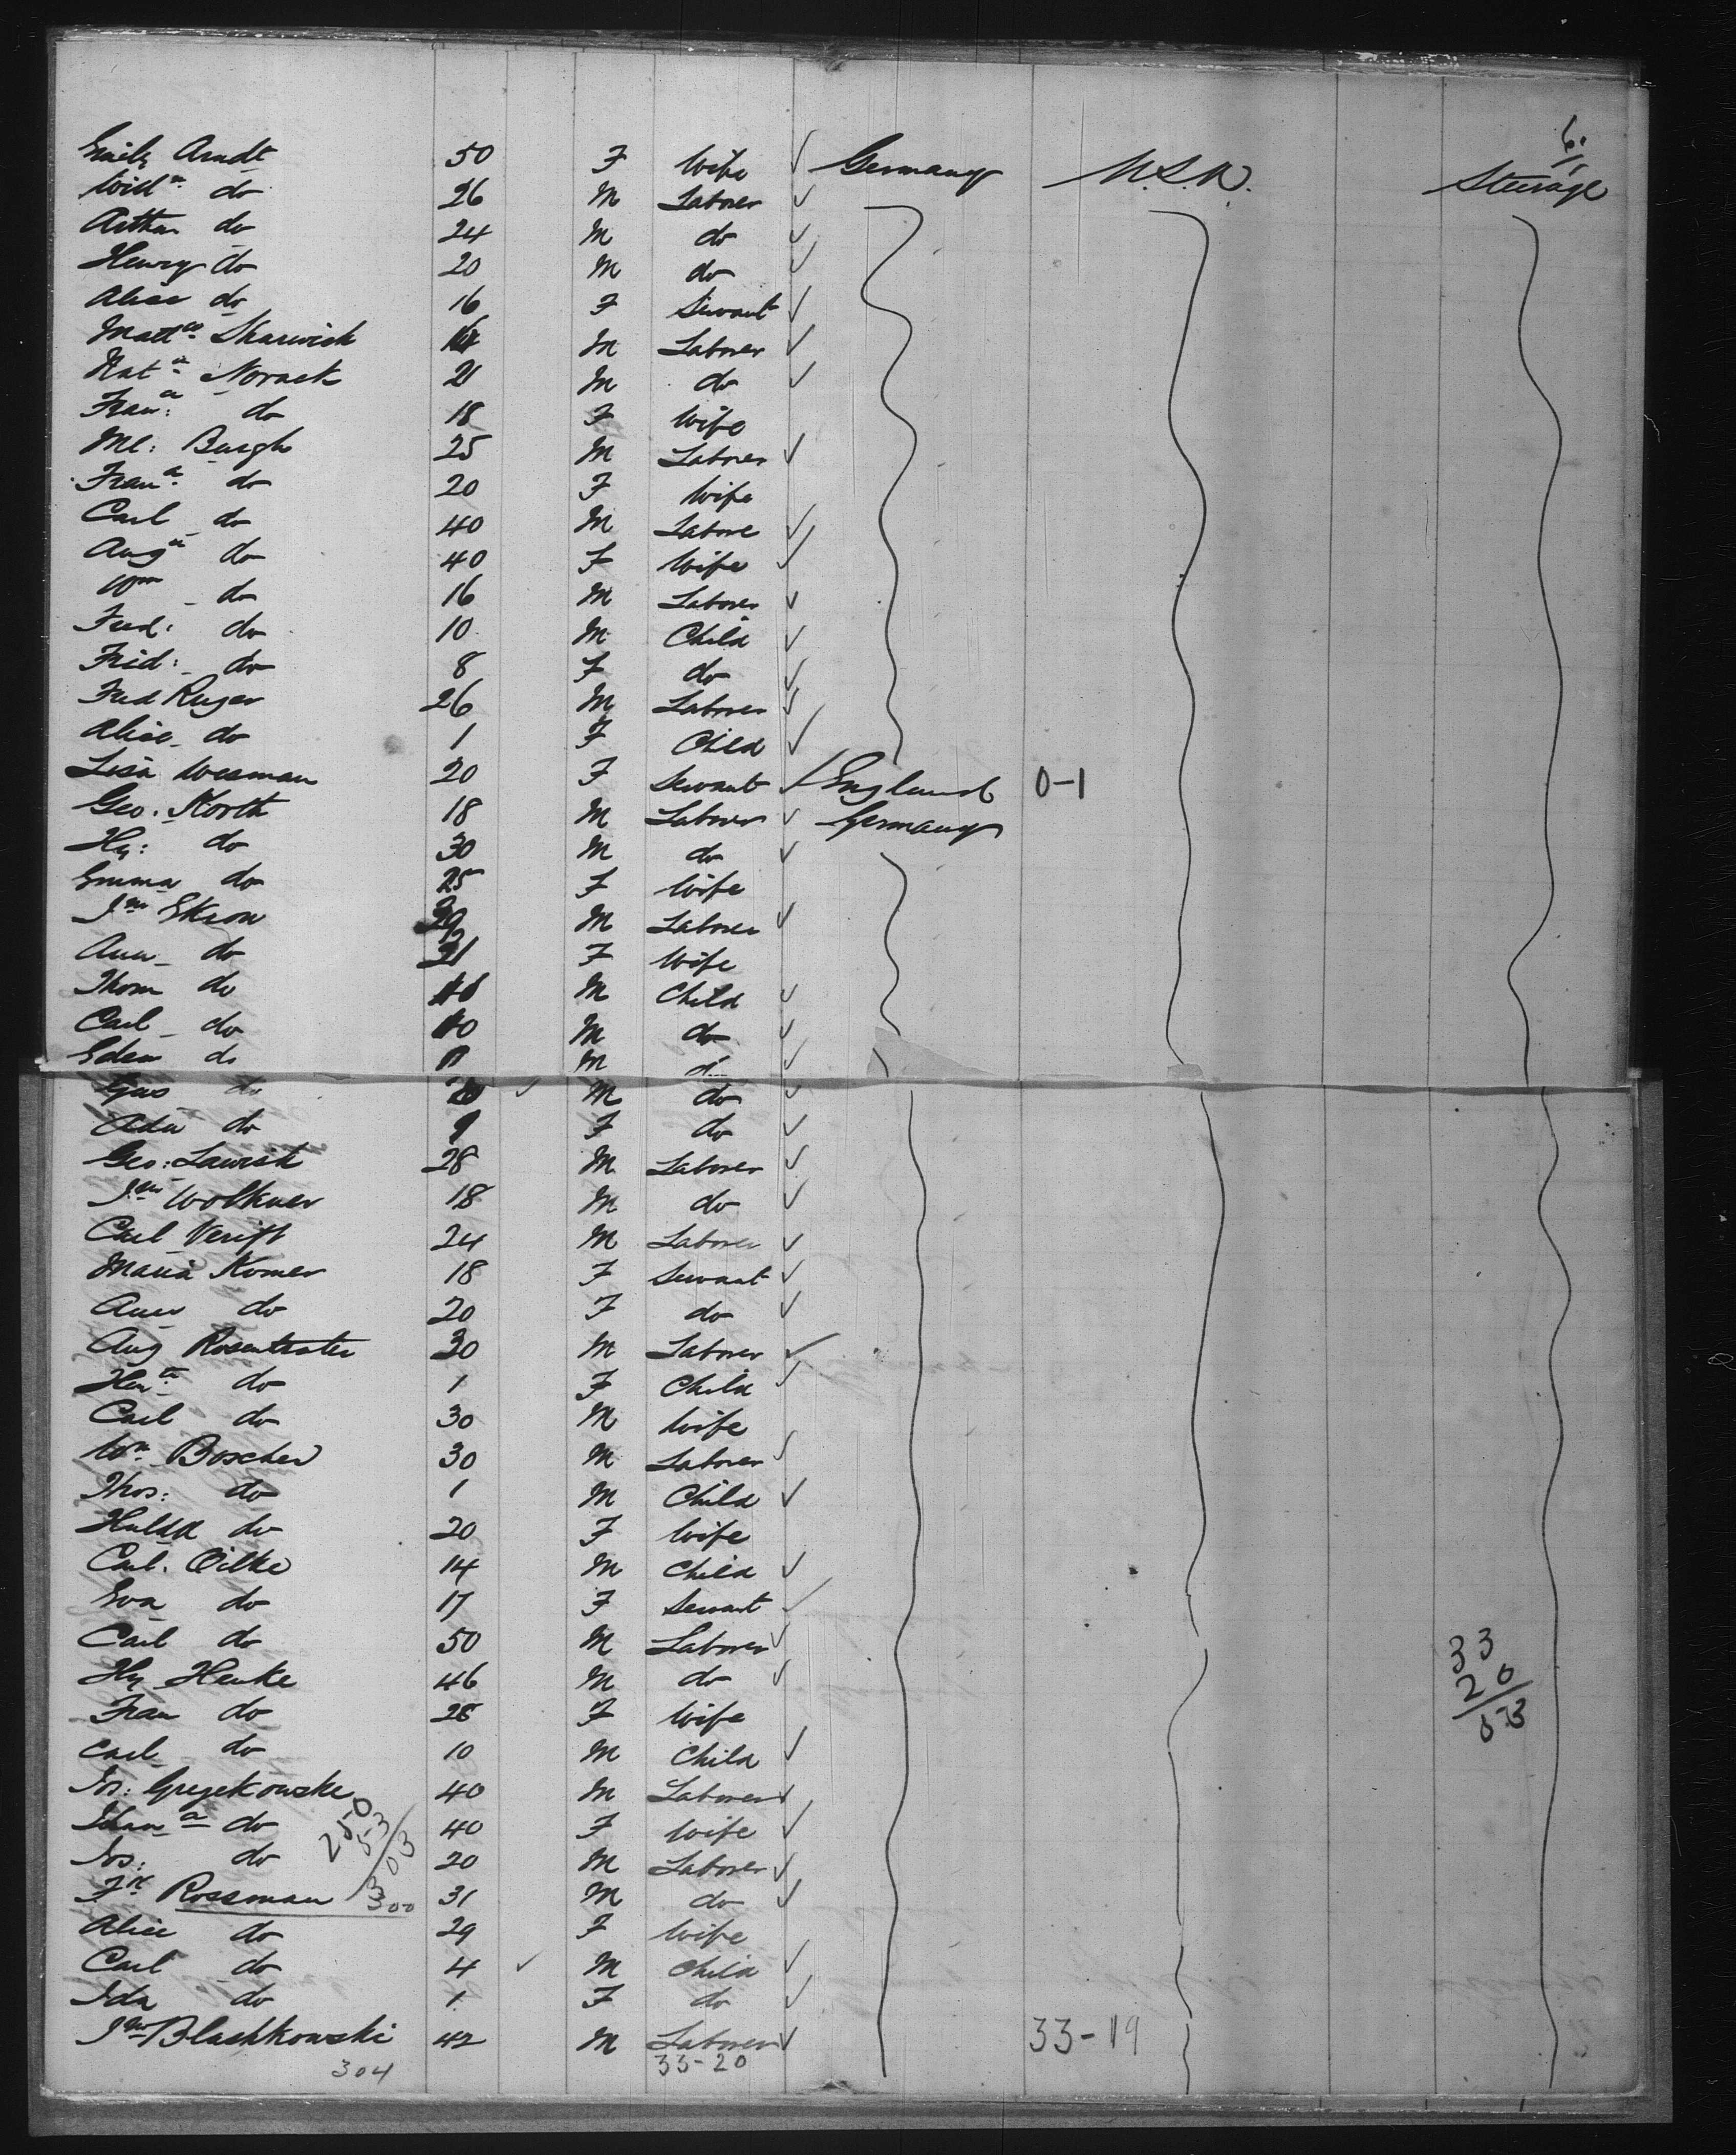 Emily Arndt 50 F Wife Germany U.S.A. Steerage
Willm do 26 M Laborer
Arthur do 24 M do
Henry do 20 M do
Alice do 16 F Servant
Mattes Skarwich M Laborer
Nat Novack 21 M do
Frana do 18 F Wife
Ml: Burgh 25 M Laborer
Frana do 20 F Wife
Carl do 40 M Labore
Auga do 40 F Wife
Wm do 16 M Laborer
Fred: do 10 M Child
Frid: do 8 F do
Fred Ruger 26 M Laborer
Alice do 1 F Child
Lisa Wesman 20 F Servant England 0-1
Geo. Korth 18 M Laborer Germany
Hy: do 30 M do
Emma do 25 F Wife
Jno Skron M Laborer
Ann do 21 F Wife
Thom do M Child
Carl do 10 M do
Edem do M do
Gus do M do
Ada do 9 F do
Geo: Lawisk 28 M Laborer
Jno Wolkner 18 M do
Carl Verift 24 M Laborer
Maria Komer 18 F Servant
Ann do 20 F do
Aug Rosentrater 30 M Laborer
Henta do 1 F Child
Carl do 30 M Wife
Wm Boscher 30 M Laborer
Thos: do 1 M Child
Hulda do 20 F Wife
Carl. Oilke 14 M Child
Eva do 17 F Servant
Carl do 50 M Laborer
Hy Henke 46 M do
Fran do 28 F Wife
Carl do 10 M Child
33
20
53
Jos: Gregekowske 40 M Laborer
do 40 F Wife
Jos: do 20 M Laborer
250
53
303
Fk Rossman 300 31 M do
Alice do 29 F Wife
Carl do 4 M Child
Ida do 1 F do
Jno Blashkowski 42 M Laborer 33-19
304 33-20